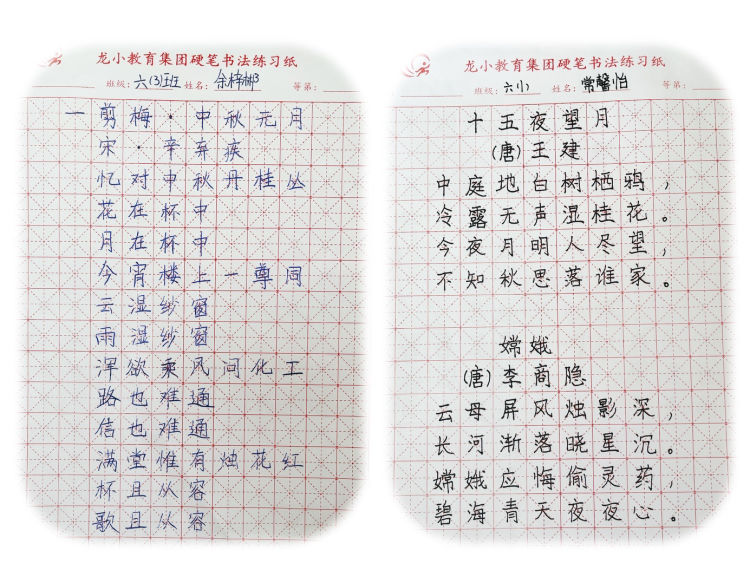 龙小教育集团硬笔书法练习纸
班级: 六(3)班 姓名: 余梓彬 等第:
一剪梅·中秋元月
宋·辛弃疾
忆对中秋丹桂丛
花在杯中
月在杯中
今宵楼上一尊同
云湿纱窗
雨湿纱窗
浑欲乘风问化工
路也难通
信也难通
满堂惟有烛花红
杯且从容
歌且从容
龙小教育集团硬笔书法练习纸
班级: 六(1) 姓名: 常馨怡 等第:
十五夜望月
(唐)王建
中庭地白树栖鸦,
冷露无声湿桂花。
今夜月明人尽望,
不知秋思落谁家。
嫦娥
(唐)李商隐
云母屏风烛影深,
长河渐落晓星沉。
嫦娥应悔偷灵药,
碧海青天夜夜心。